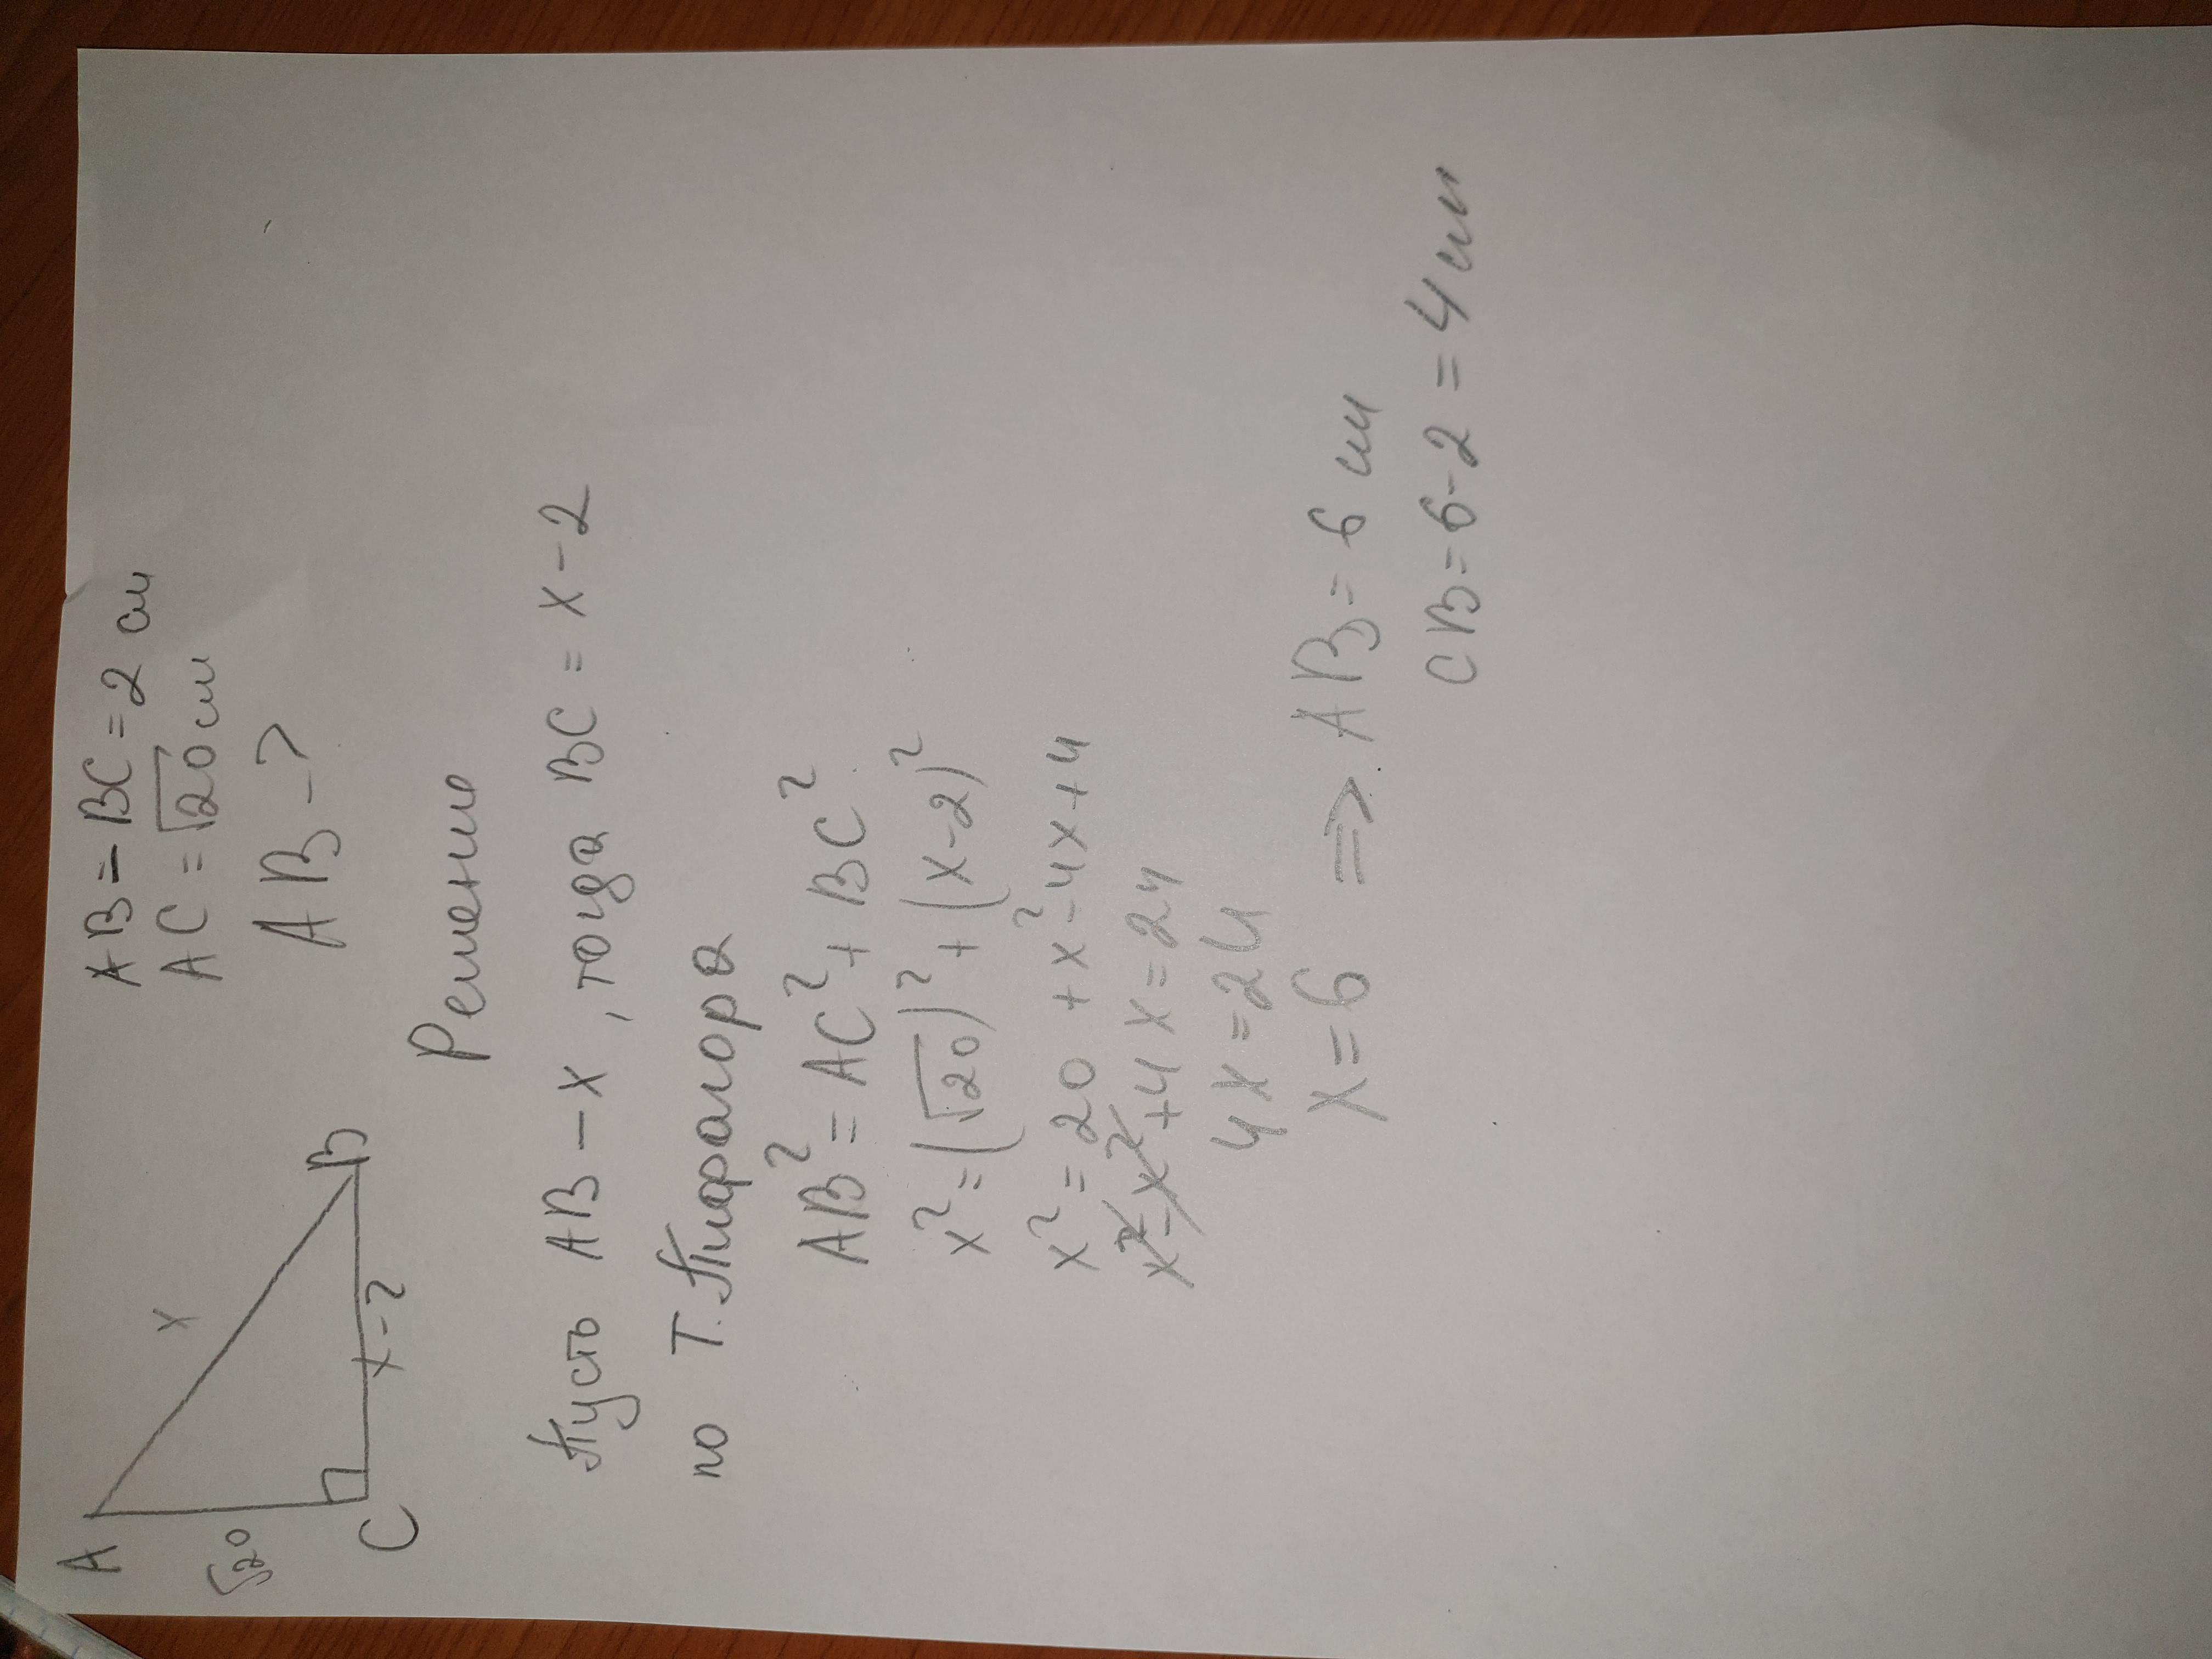 A
x
√20
C
x-2
B
AB-BC=2 см
AC=√20 см
AB-?
Решение
Пусть AB-x, тогда BC=x-2
по Т. Пифагора
AB²=AC²+BC²
x²=(√20)²+(x-2)²
x²=20+x²-4x+4
x²-x²+4x=24
4x=24
x=6 => AB=6 см
CB=6-2=4см